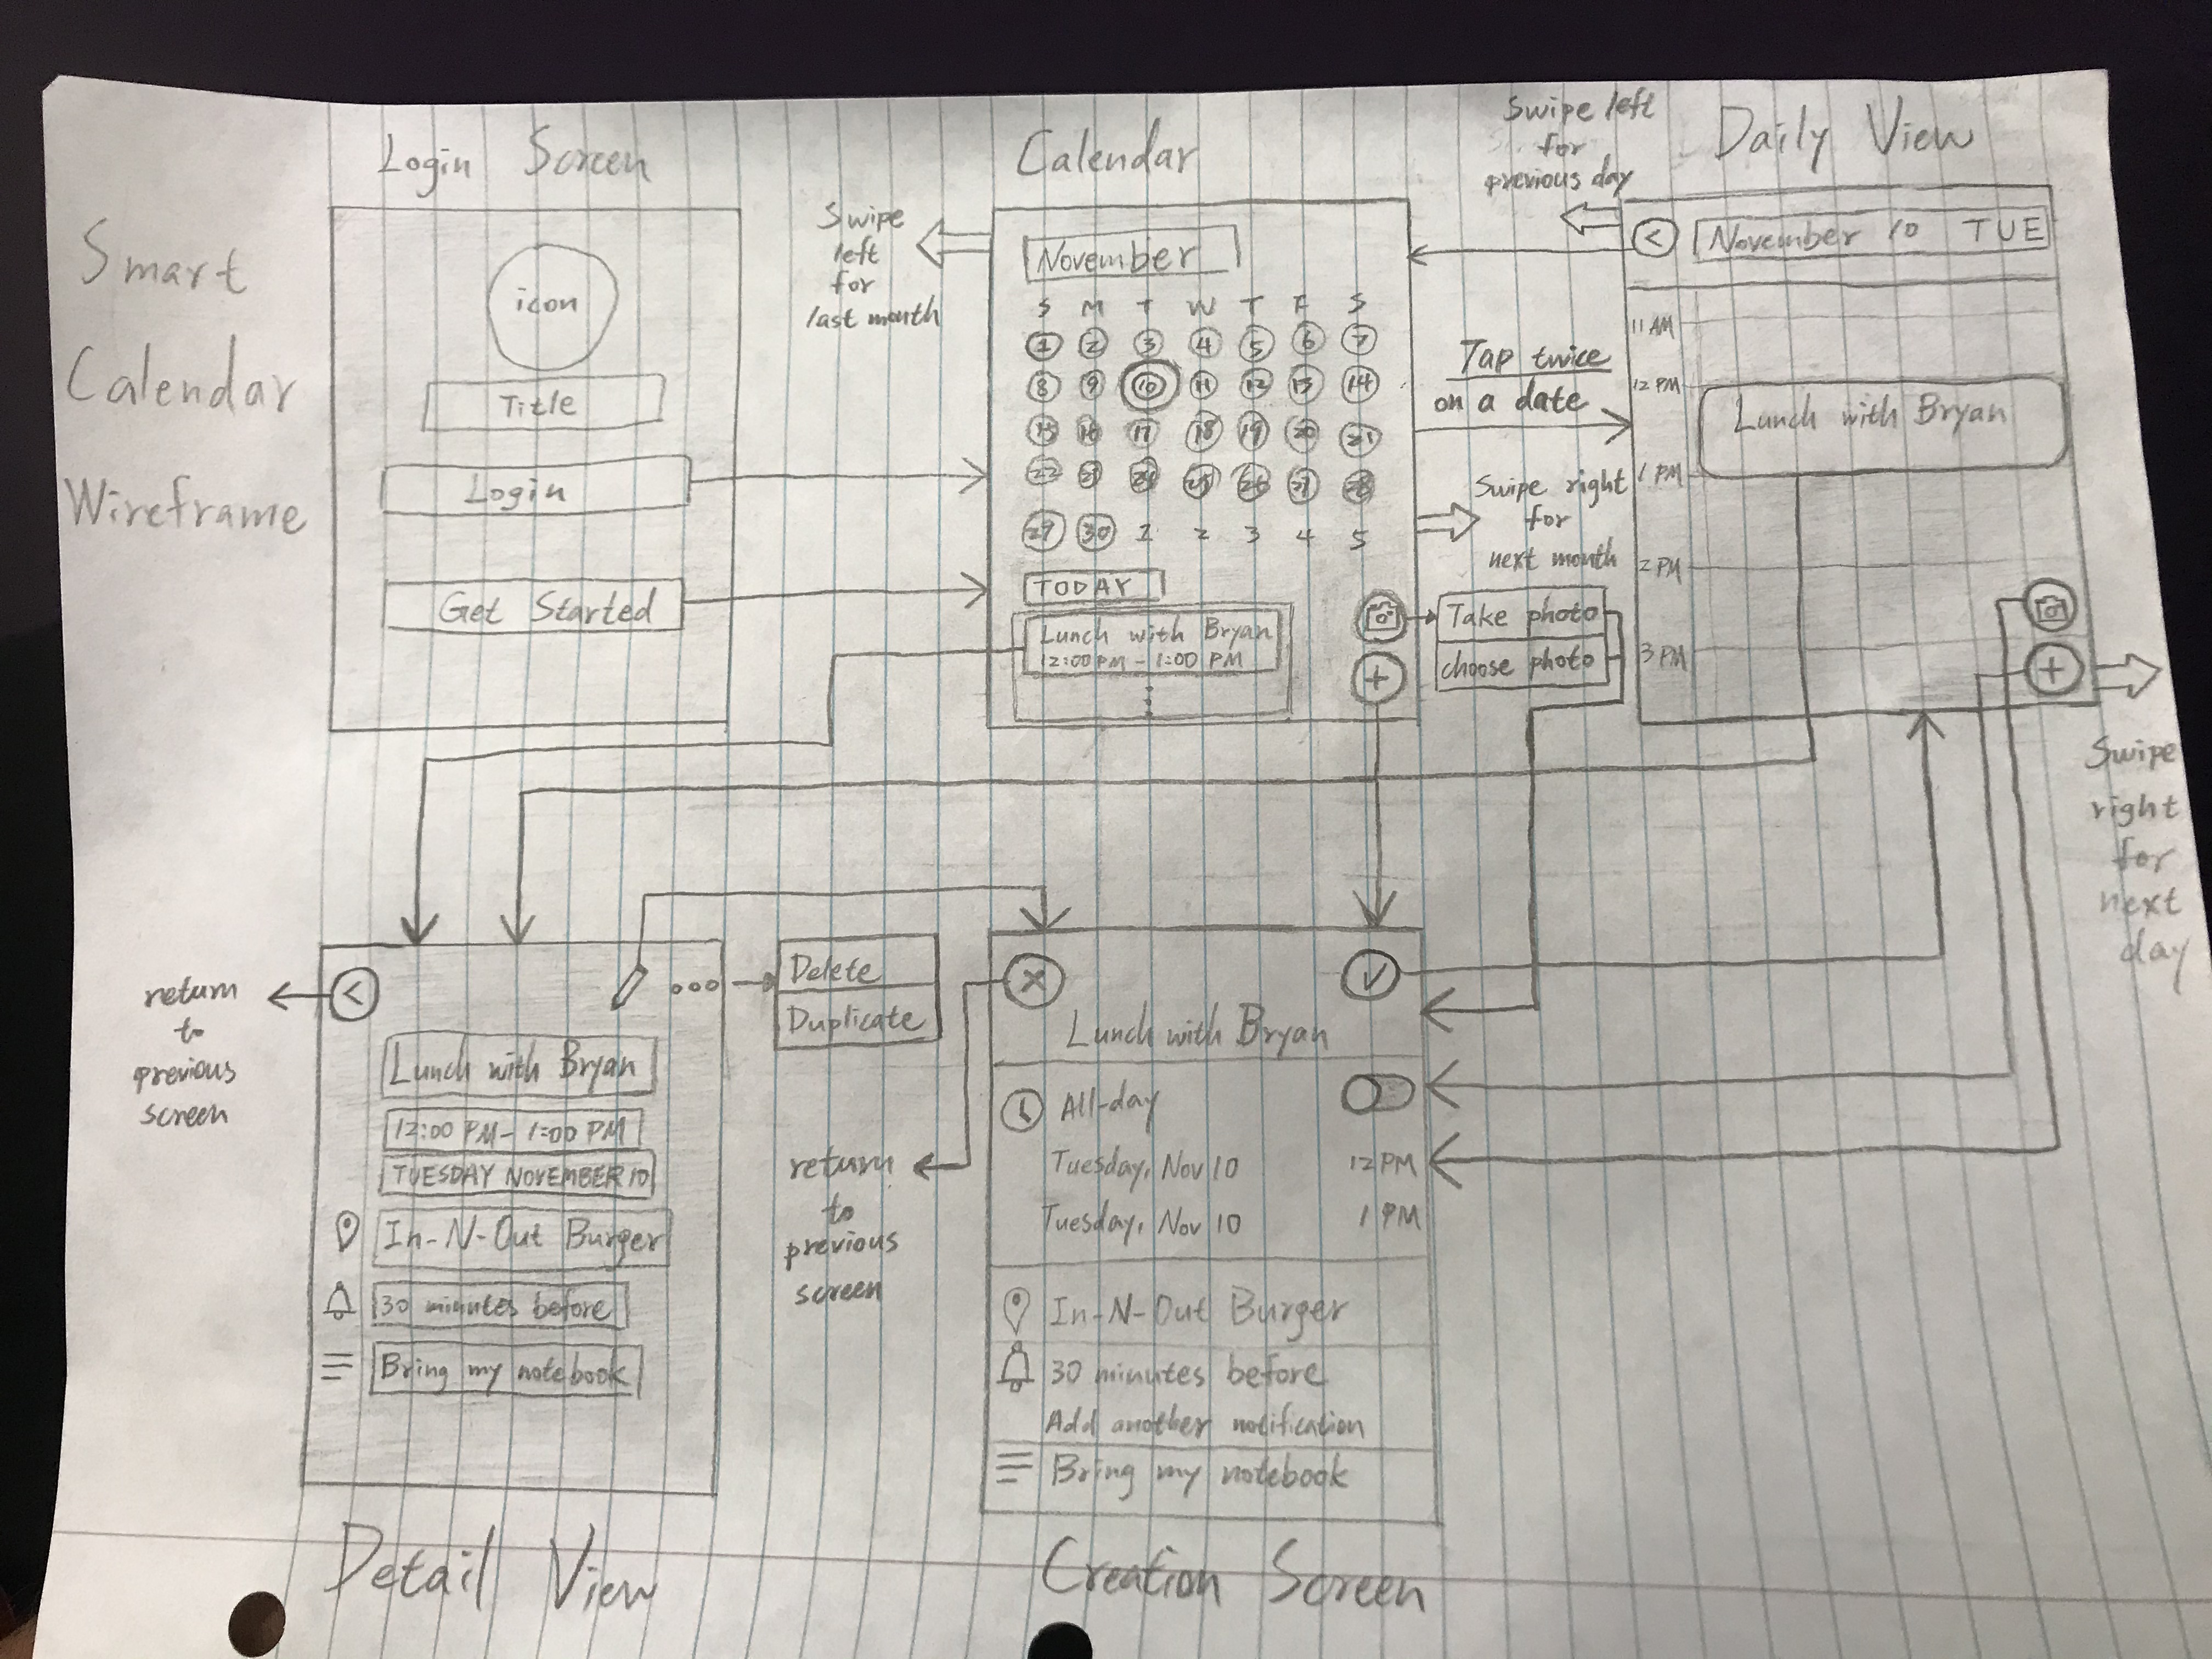 Smart
Calendar
Wireframe
Login Screen
icon
Title
Login
Get Started
Swipe
left
for
last month
Calendar
November
S M T W T F S
1 2 3 4 5 6 7
8 9 10 11 12 13 14
15 16 17 18 19 20 21
22 23 24 25 26 27 28
29 30 1 2 3 4 5
TODAY
Lunch with Bryan
12:00 PM - 1:00 PM
+
Swipe left
for
previous day
Tap twice
on a date
Swipe right
for
next month
Take photo
choose photo
Daily View
< November 10 TUE
11 AM
12 PM
Lunch with Bryan
1 PM
2 PM
3 PM
+
Swipe
right
for
next
day
return
to
previous
screen
<
Lunch with Bryan
12:00 PM - 1:00 PM
TUESDAY NOVEMBER 10
In-N-Out Burger
30 minutes before
Bring my notebook
Detail View
Delete
Duplicate
return
to
previous
screen
Lunch with Bryan
All-day
Tuesday, Nov 10 12 PM
Tuesday, Nov 10 1 PM
In-N-Out Burger
30 minutes before
Add another notification
Bring my notebook
Creation Screen